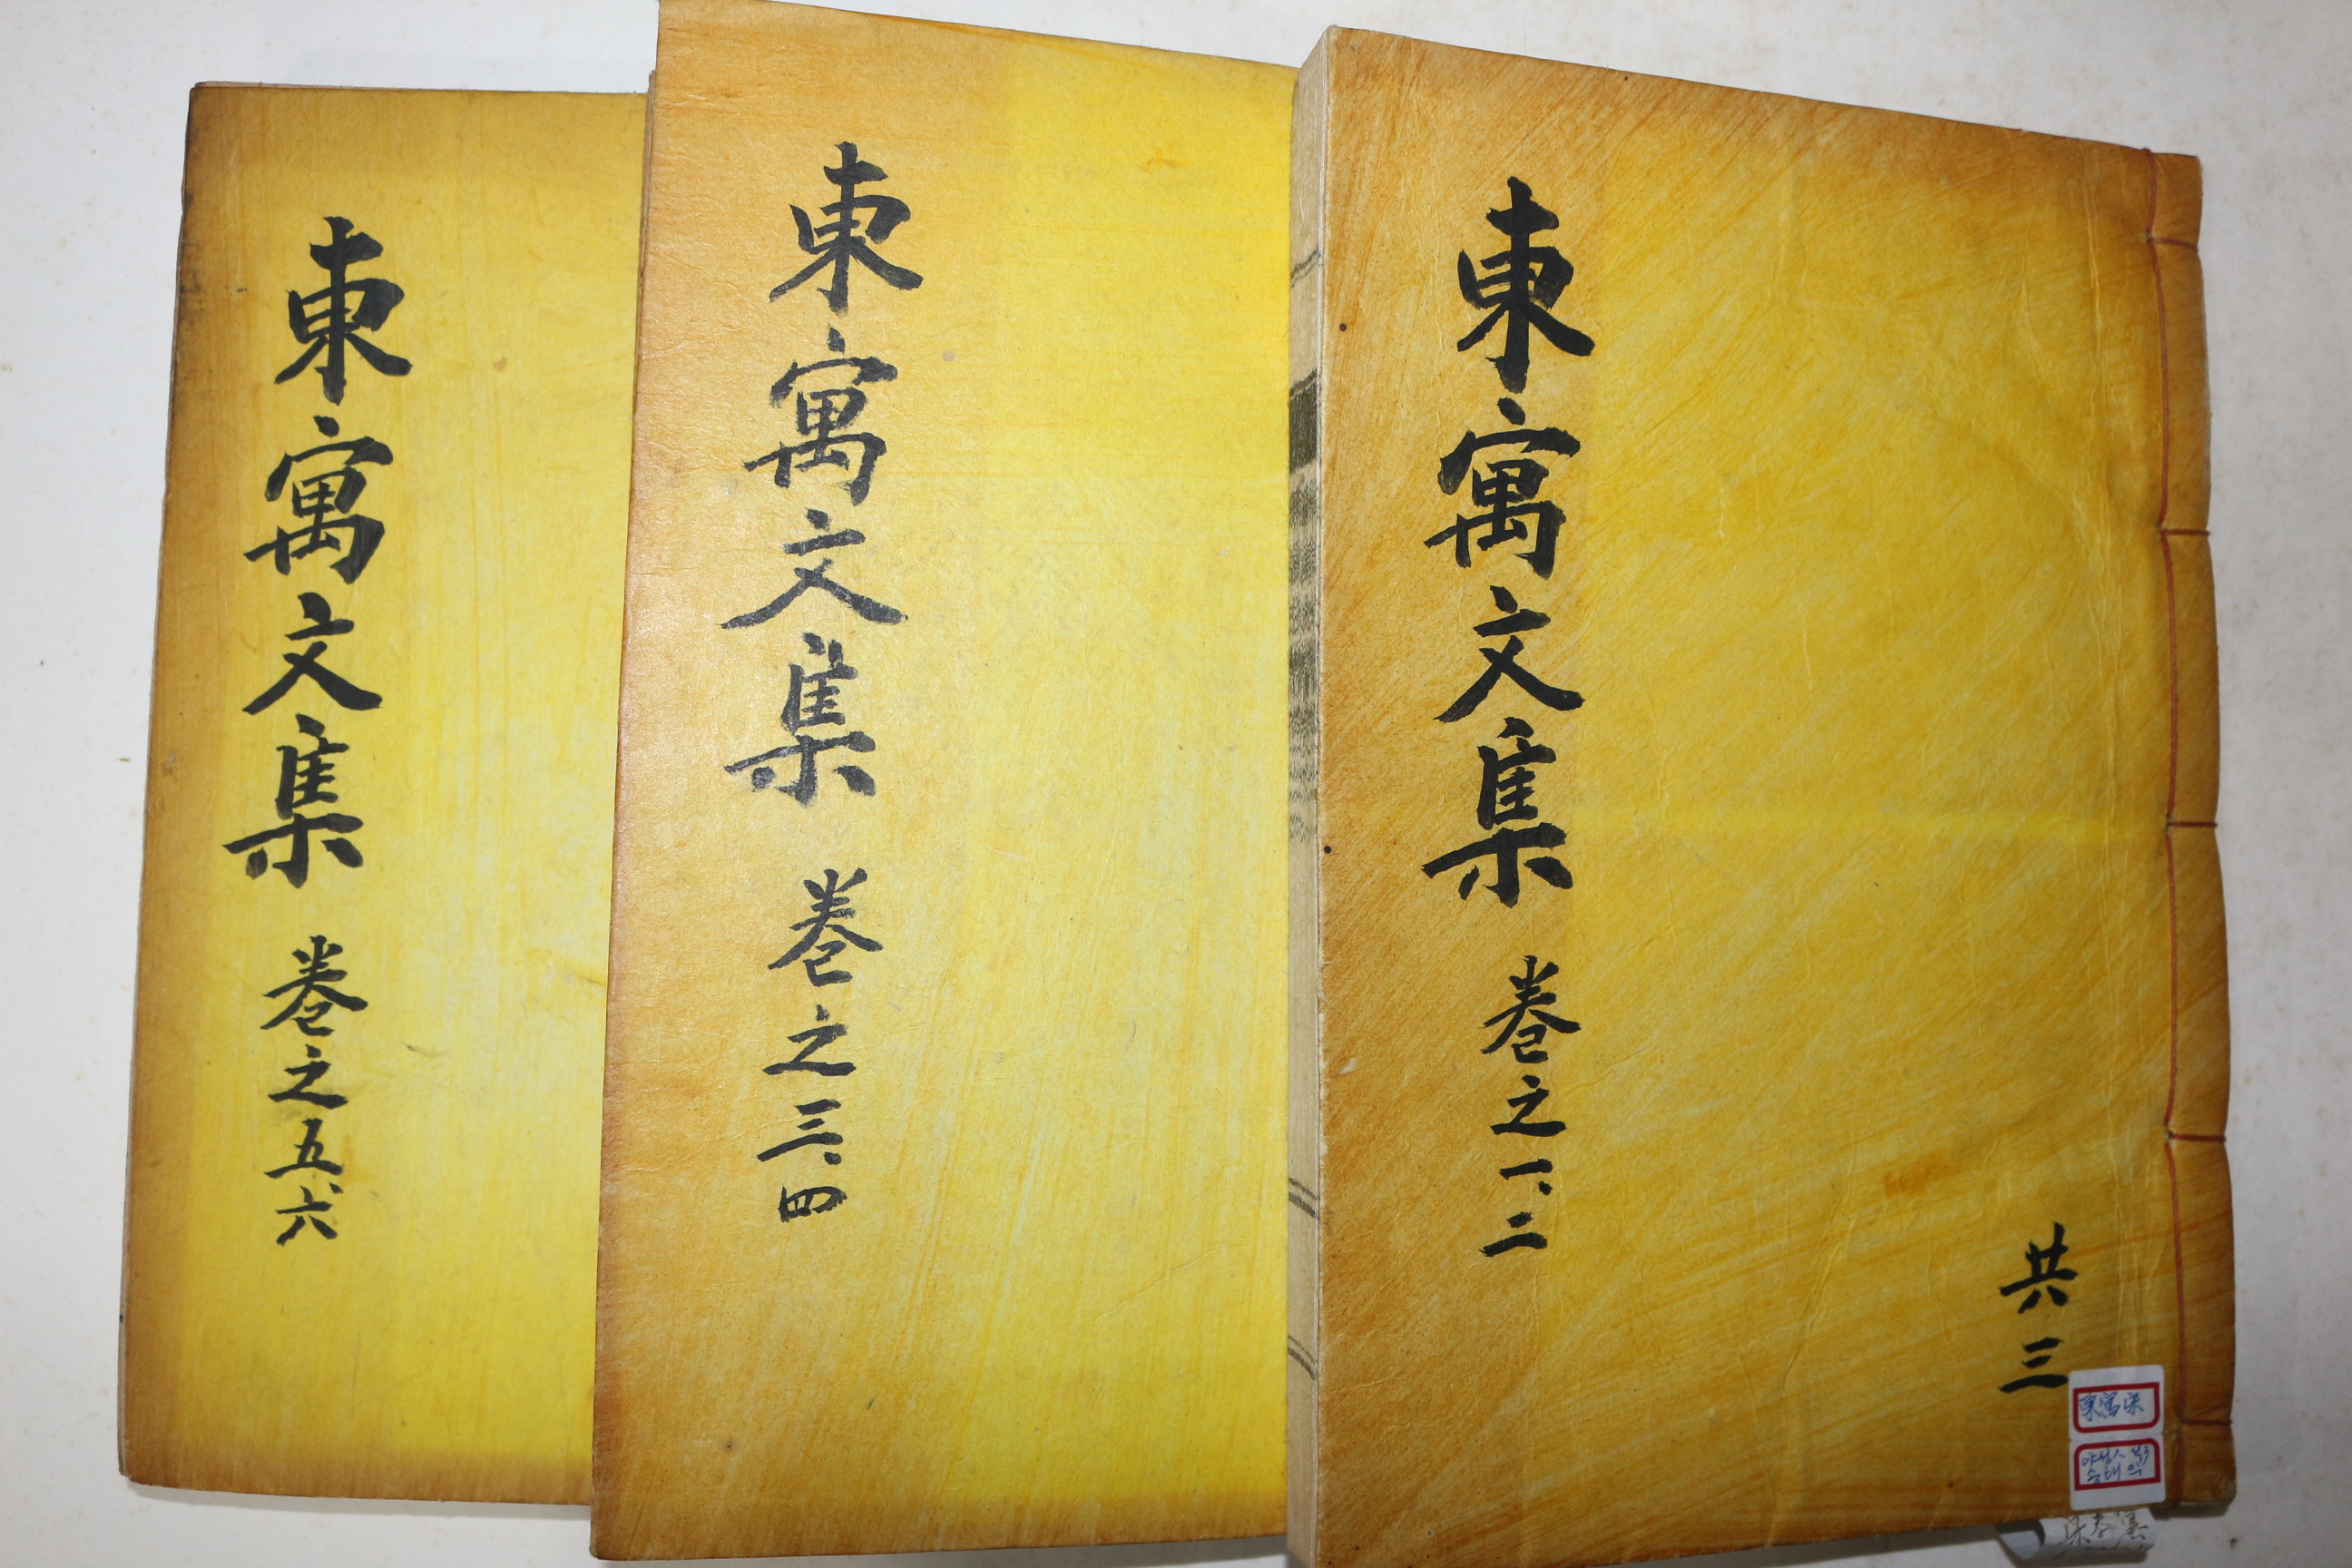 東寓文集 卷之一、二
共三
東寓文集 卷之三、四
東寓文集 卷之五、六
東寓集